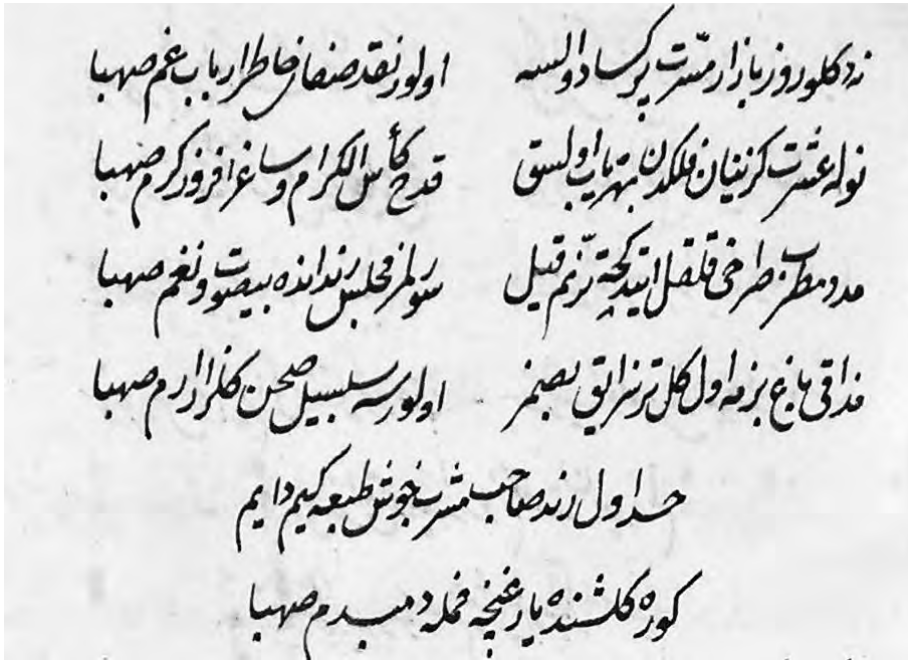 نه دكلو روز بازار مسرّت پر كساد اولسه اولور نقد صفای خاطر ارباب غم صهبا
نوله عشرت فلكدن بهره یاب اولسق قدح كأس الكرام و ساغر افروز كرم صهبا
مدد مطرب صراحی قلقل ایتدكجه ترنّم قیل سورلمز مجلس رندانده بیصوت و نغم صهبا
مذاقی باغ بزمه اول كل ترسز ایاق بصمز اولورسه سلسبیل صحن كلزار ارم صهبا
حسد اول رند صاحب مشرب خوش طبعه كیم دایم
كوره كلشنده یار غنچه فمله دمبدم صهبا